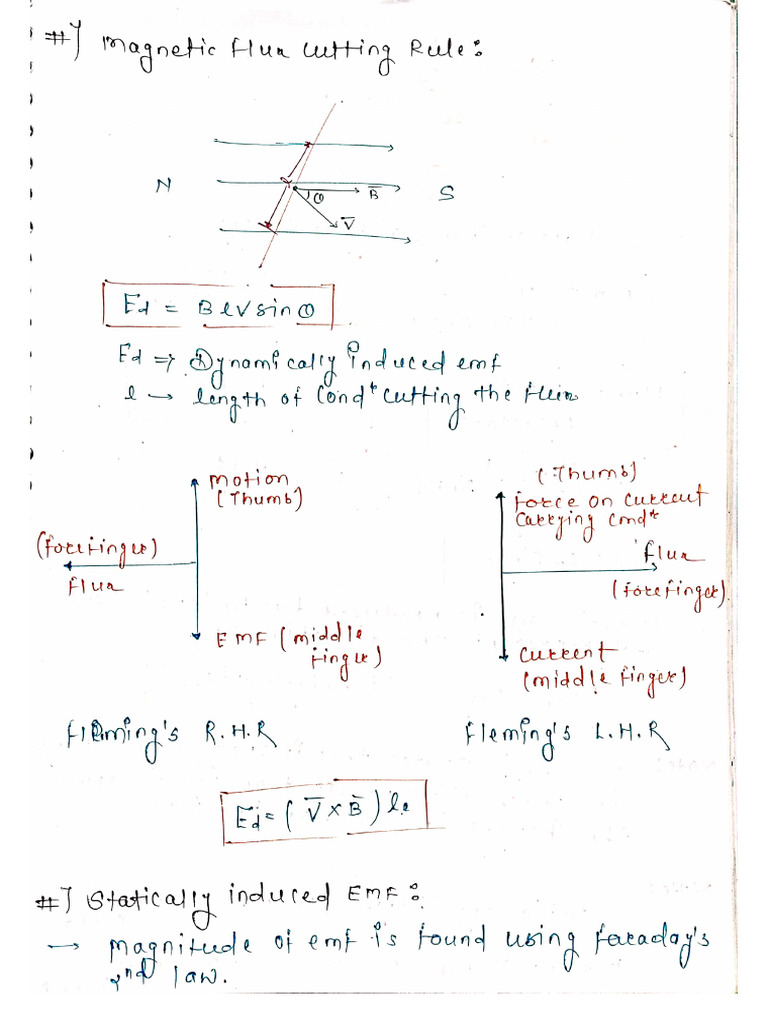 #) Magnetic flux cutting Rule:
N
S
θ
B̅
V̅
Ed = BlVsinθ
Ed => Dynamically induced emf
l → length of Condr cutting the flux
Motion
(Thumb)
(forefinger)
flux
EMF (middle
finger)
(Thumb)
force on current
carrying condr
flux
(forefinger).
current
(middle finger)
fleming's R.H.R
fleming's L.H.R
Ed = (V̅ × B̅) le
#) Statically induced EMF:
→ magnitude of emf is found using faraday's
2nd law.